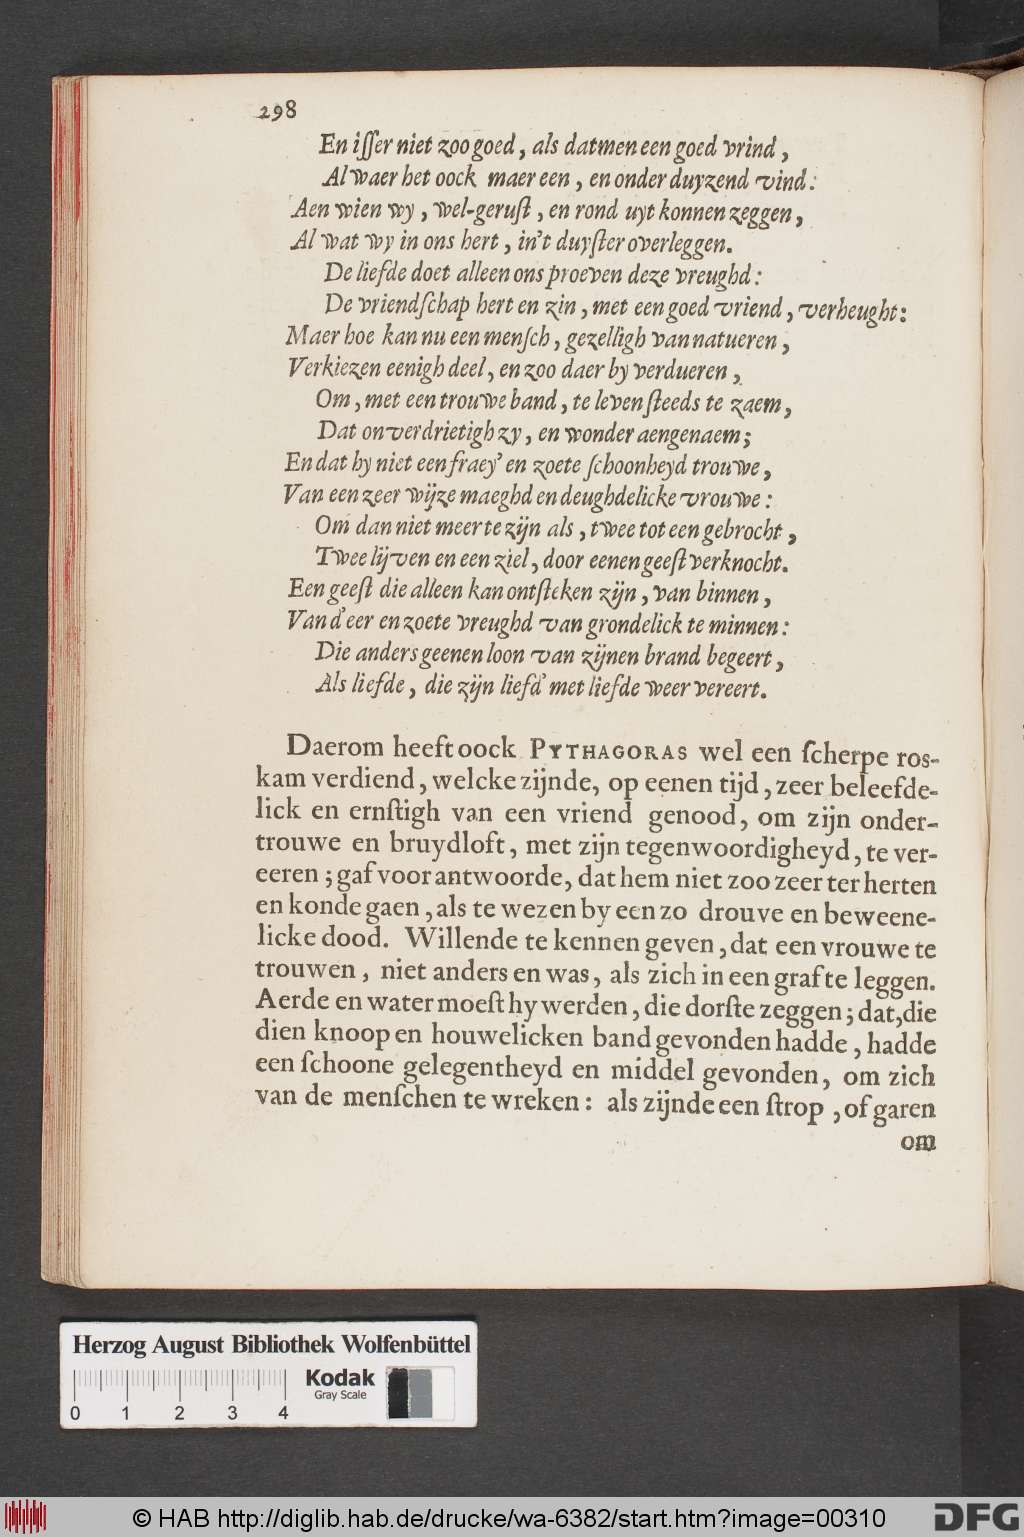 298
En isser niet zoo goed, als datmen een goed vrind,
Al waer het oock maer een, en onder duyzend vind:
Aen wien wy, wel-gerust, en rond uyt konnen zeggen,
Al wat wy in ons hert, in't duyster overleggen.
De liefde doet alleen ons proeven deze vreughd:
De vriendschap hert en zin, met een goed vriend, verheught:
Maer hoe kan nu een mensch, gezelligh van natueren,
Verkiezen eenigh deel, en zoo daer by verdueren,
Om, met een trouwe band, te leven steeds te zaem,
Dat onverdrietigh zy, en wonder aengenaem;
En dat hy niet een fraey' en zoete schoonheyd trouwe,
Van een zeer wijze maeghd en deughdelicke vrouwe:
Om dan niet meer te zijn als, twee tot een gebrocht,
Twee lijven en een ziel, door eenen geest verknocht.
Een geest die alleen kan ontsteken zijn, van binnen,
Van d'eer en zoete vreughd van grondelick te minnen:
Die anders geenen loon van zijnen brand begeert,
Als liefde, die zijn liefd' met liefde weer vereert.
Daerom heeft oock PYTHAGORAS wel een scherpe ros-
kam verdiend, welcke zijnde, op eenen tijd, zeer beleefde-
lick en ernstigh van een vriend genood, om zijn onder-
trouwe en bruydloft, met zijn tegenwoordigheyd, te ver-
eeren; gaf voor antwoorde, dat hem niet zoo zeer ter herten
en konde gaen, als te wezen by een zo drouve en beweene-
licke dood. Willende te kennen geven, dat een vrouwe te
trouwen, niet anders en was, als zich in een graf te leggen.
Aerde en water moest hy werden, die dorste zeggen; dat, die
dien knoop en houwelicken band gevonden hadde, hadde
een schoone gelegentheyd en middel gevonden, om zich
van de menschen te wreken: als zijnde een strop, of garen
om
Herzog August Bibliothek Wolfenbüttel
Kodak
Gray Scale
0 1 2 3 4
© HAB http://diglib.hab.de/drucke/wa-6382/start.htm?image=00310
DFG